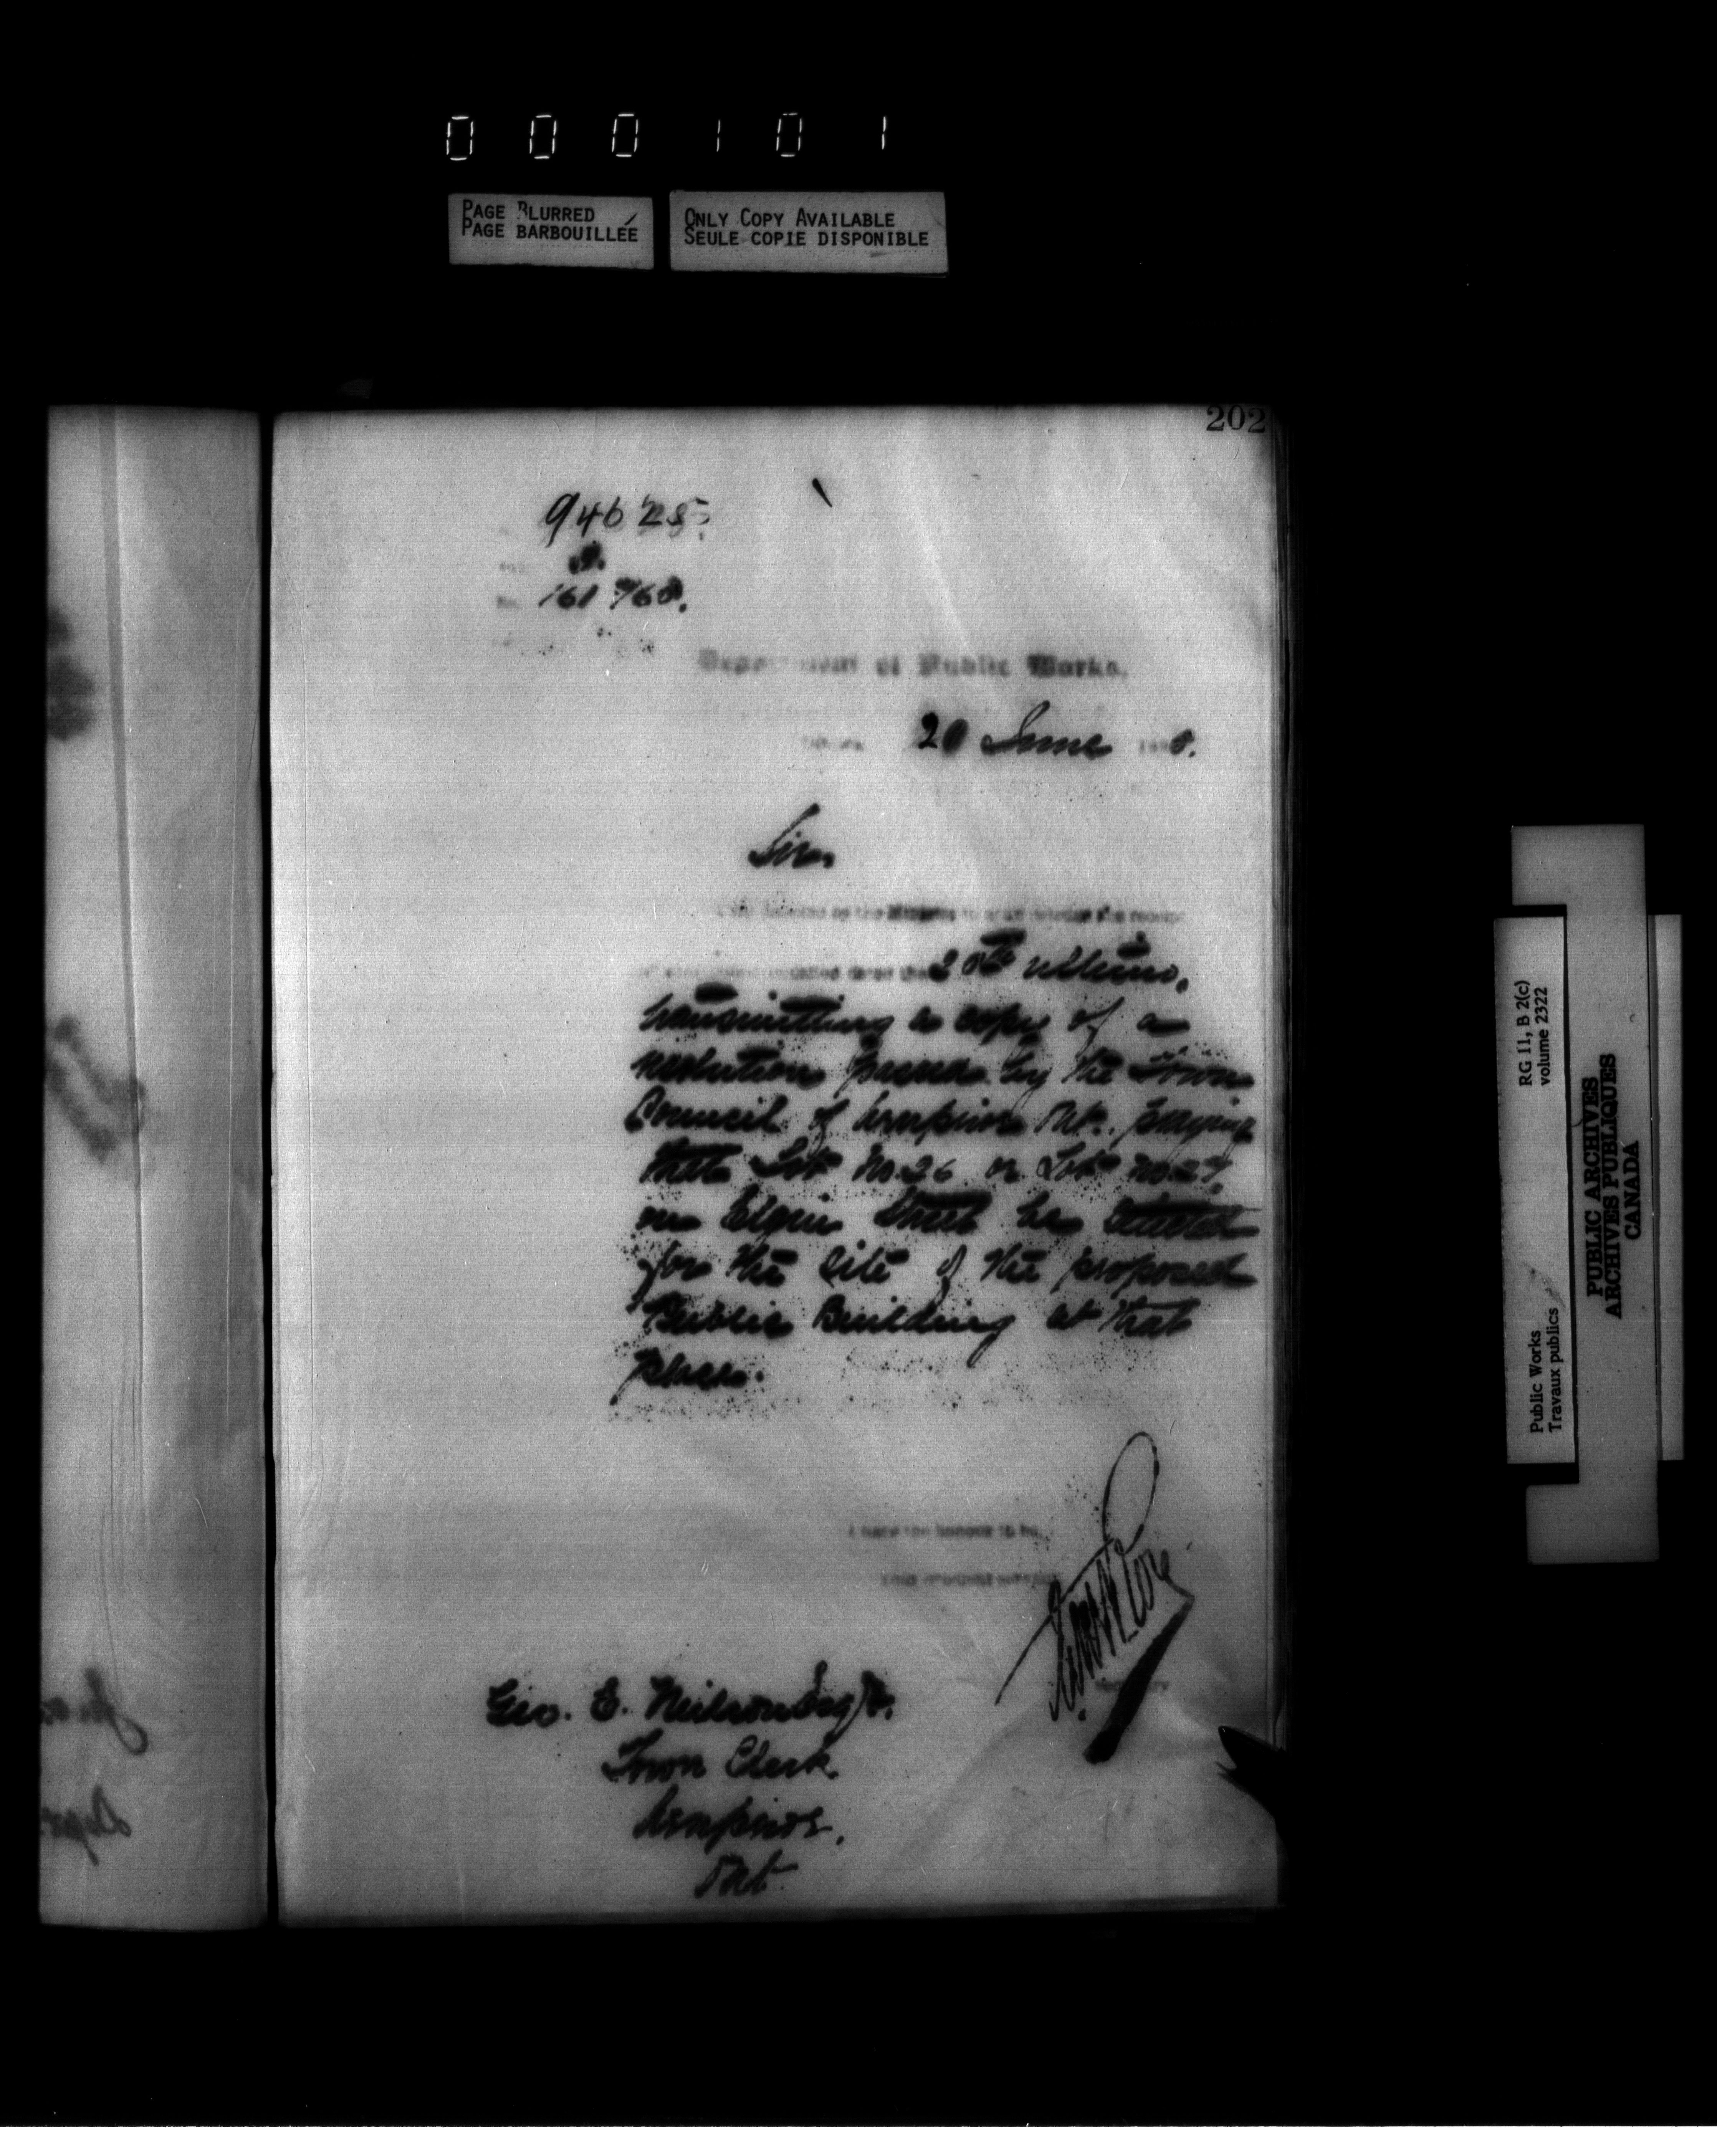 000101
PAGE BLURRED
PAGE BARBOUILLÉE
ONLY COPY AVAILABLE
SEULE COPIE DISPONIBLE
202
94625
161768.
Department of Public Works.
20 June 18
Sir,
the receipt
20th ultimo,
transmitting a copy of a
resolution passed by the Town
Council of Arnprior Ont. praying
that Lot No. 26 or Lot No. 27,
on Elgin Street be selected
for the site of the proposed
Public Building at that
place.
I have the honour to be,
Your obedient servant
Geo. E. Neilson Esqr.
Town Clerk
Arnprior,
Ont.
RG 11, B 2(c)
volume 2322
Public Works
Travaux publics
PUBLIC ARCHIVES
ARCHIVES PUBLIQUES
CANADA